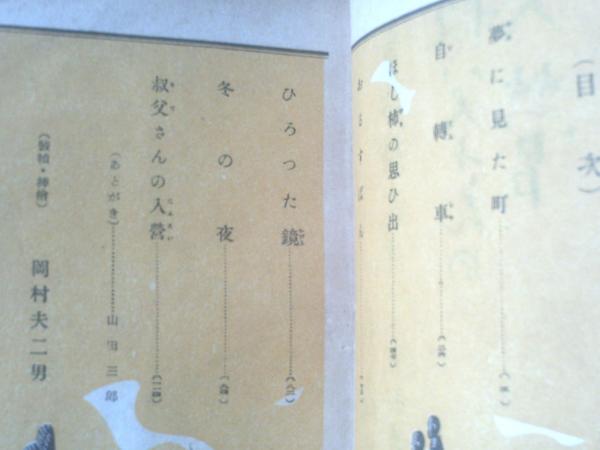 （目次）
夢に見た町
自轉車
ほし柿の思ひ出
おるすばん
ひろつた鏡
冬の夜
叔父さんの入營
（あとがき）山田三郎
（裝幀・挿繪）岡村夫二男